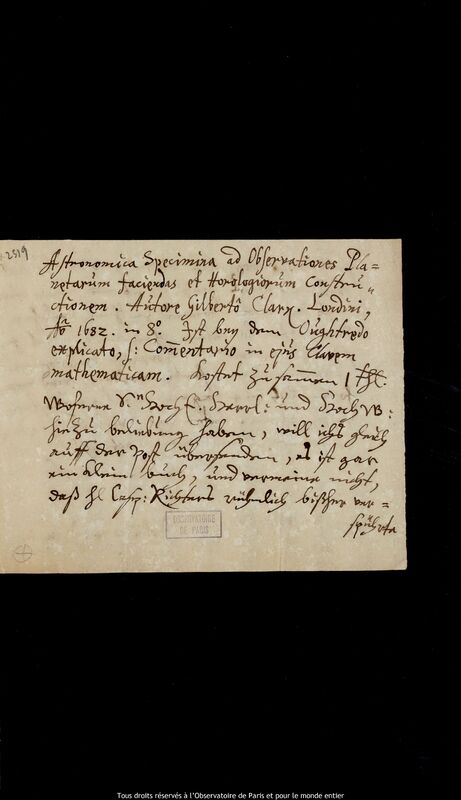 2519
Astronomica Specimina ad Observationes Pla=
netarum faciendas et Horologiorum constru=
ctionem. Autore Gilberto Clark. Londini,
Aõ 1682. in 8º. Ist bey dem Oughtredo
explicato, s: Com̃entario in ejus Clavem
mathematicam. Kostet zusam̃en 1 Thl.
Woferne S. HochE. Herrl: und HochW:
hiezu beliebung haben, will ichs gleich
auff der Post übersenden, es ist gar
ein klein buch, und vermeine nicht,
daß H Casp: Richters rühmlich bißher ver=
spührte
OBSERVATOIRE
DE PARIS
Tous droits réservés à l'Observatoire de Paris et pour le monde entier